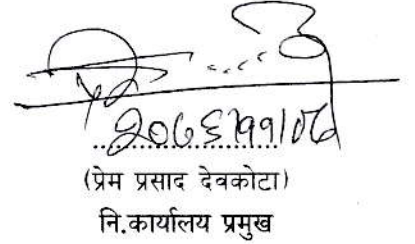 २०७६।११।०७
(प्रेम प्रसाद देवकोटा)
नि.कार्यालय प्रमुख